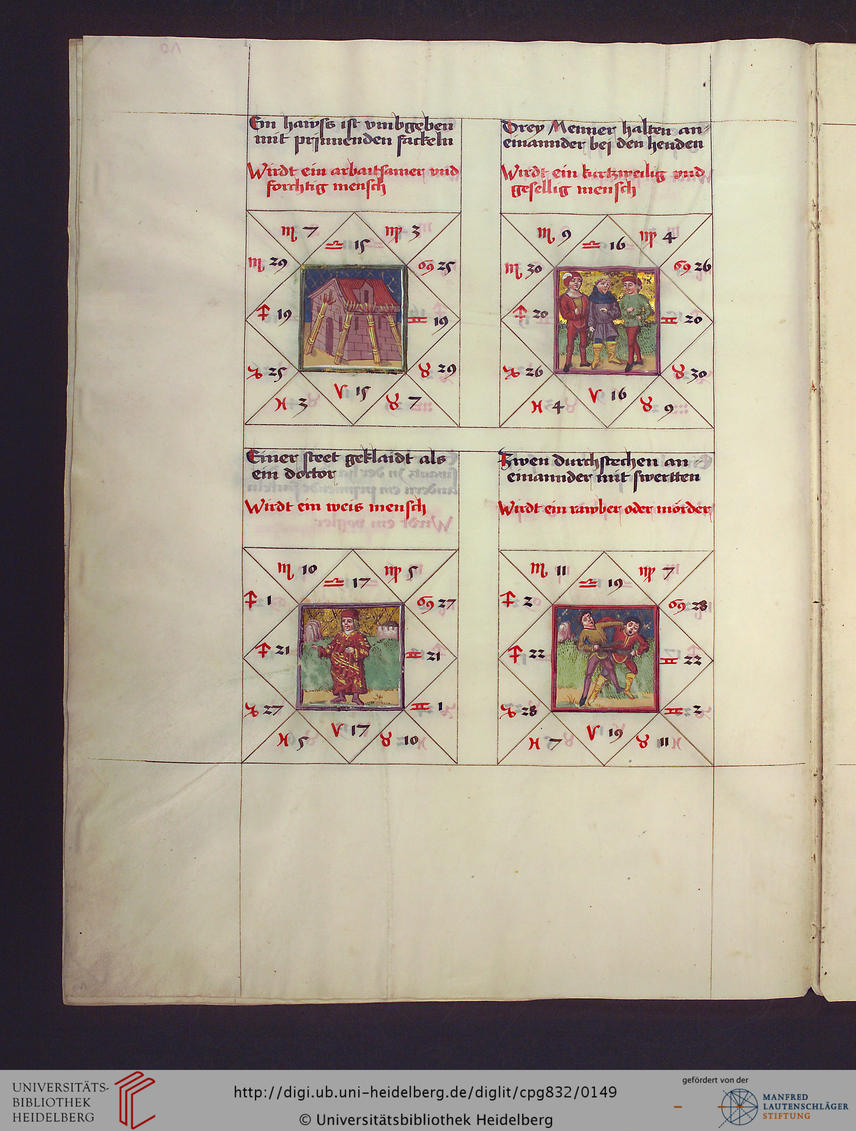 Ein hawss ist vmbgeben
mit prynnenden fackeln
Wirdt ein arbaitsamer vnd
forchtig mensch
♏ 7 ♎ 15 ♍ 3
♏ 29 ♋ 25
♐ 19 ♊ 19
♑ 25 ♉ 29
♓ 3 ♈ 15 ♉ 7
Drey Menner halten an=
einannder bej den henden
Wirdt ein kurtzweilig vnd
gesellig mensch
♏ 9 ♎ 16 ♍ 4
♏ 30 ♋ 26
♐ 20 ♊ 20
♑ 26 ♉ 30
♓ 4 ♈ 16 ♉ 9
Einer steet geklaidt als
ein doctor
Wirdt ein weis mensch
♏ 10 ♎ 17 ♍ 5
♐ 1 ♋ 27
♐ 21 ♊ 21
♑ 27 ♊ 1
♓ 5 ♈ 17 ♉ 10
Zwen durchstechen an
einannder mit swertten
Wirdt ein rawber oder mörder
♏ 11 ♎ 19 ♍ 7
♐ 2 ♋ 28
♐ 22 ♊ 22
♑ 28 ♊ 2
♓ 7 ♈ 19 ♉ 11
UNIVERSITÄTS-
BIBLIOTHEK
HEIDELBERG
http://digi.ub.uni-heidelberg.de/diglit/cpg832/0149
© Universitätsbibliothek Heidelberg
gefördert von der
MANFRED
LAUTENSCHLÄGER
STIFTUNG